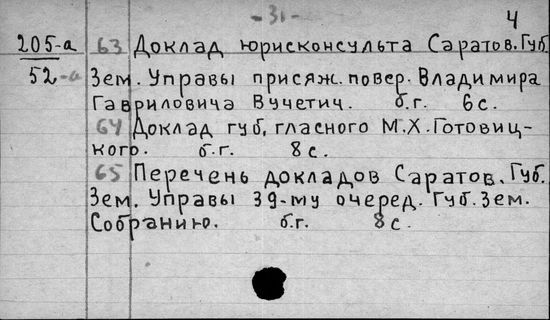 -31-
4
205-а 63 Доклад юрисконсульта Саратов. Губ.
52-а Зем. Управы присяж. повер. Владимира
Гавриловича Вучетич. б.г. 6 с.
64 Доклад губ, гласного М.Х. Готовиц-
кого. б.г. 8 с.
65 Перечень докладов Саратов. Губ.
Зем. Управы 39-му очеред. Губ. Зем.
Собранию. б.г. 8 с.